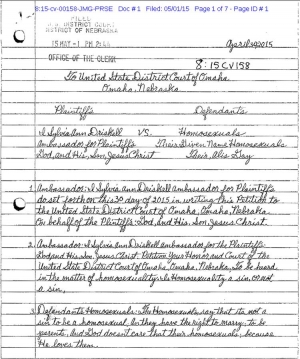 8:15-cv-00158-JMG-PRSE Doc # 1 Filed: 05/01/15 Page 1 of 7 - Page ID # 1
FILED
U.S. DISTRICT COURT
DISTRICT OF NEBRASKA
15 MAY -1 PM
OFFICE OF THE CLERK
April 30, 2015
8:15CV158
To United State District Court of Omaha,
Omaha, Nebraska
Plaintiffs Defendants
I Sylvia Ann Driskell VS. Homosexuals
Ambassador for Plaintiffs Their Given Name Homosexuals
God, and His, Son, Jesus Christ Their, Alis Gay
1. Ambassador: I Sylvia Ann Driskell ambassador for Plaintiffs
do set forth on this 30 day of 2015 in writing this Petition to
the United State District Court of Omaha, Omaha, Nebraska.
On behalf of the Plaintiffs: God, and His, Son, Jesus Christ.
2. Ambassador: I Sylvia Ann Driskell ambassador for the Plaintiffs
God, and His, Son, Jesus Christ. Petition Your Honor, and Court of the
United State District Court of Omaha, Omaha, Nebraska, To be heard
in the matter of homosexuality. Is Homosexuality a sin, or not
a sin,
3. Defendants Homosexuals: The Homosexuals say that its not a
sin to be a homosexual, An they have the right to marry; to be
parents, And God doesn't care that their homosexuals; because
He loves them.